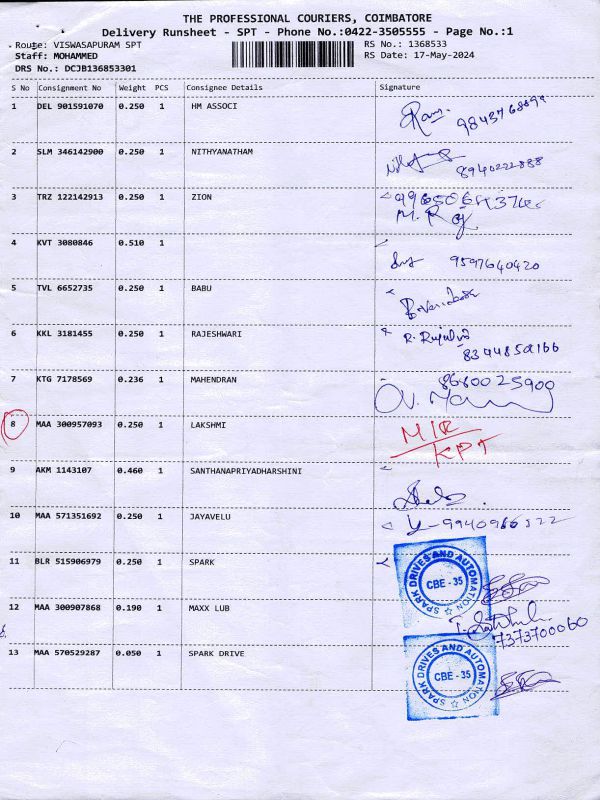 THE PROFESSIONAL COURIERS, COIMBATORE
Delivery Runsheet - SPT - Phone No.:0422-3505555 - Page No.:1
Route: VISWASAPURAM SPT RS No.: 1368533
Staff: MOHAMMED RS Date: 17-May-2024
DRS No.: DCJB136853301
S No Consignment No Weight PCS Consignee Details Signature
1 DEL 901591070 0.250 1 HM ASSOCI
2 SLM 346142900 0.250 1 NITHYANATHAM
8940222888
3 TRZ 122142913 0.250 1 ZION
M. Roy
4 KVT 3080846 0.510 1
9597640420
5 TVL 6652735 0.250 1 BABU
6 KKL 3181455 0.250 1 RAJESHWARI
8394850166
7 KTG 7178569 0.236 1 MAHENDRAN
8680025900
8 MAA 300957093 0.250 1 LAKSHMI
MIR
KPT
9 AKM 1143107 0.460 1 SANTHANAPRIYADHARSHINI
10 MAA 571351692 0.250 1 JAYAVELU
11 BLR 515906979 0.250 1 SPARK
SPARK DRIVES AND AUTOMATION
CBE - 35
12 MAA 300907868 0.190 1 MAXX LUB
7373700060
13 MAA 570529287 0.050 1 SPARK DRIVE
SPARK DRIVES AND AUTOMATION
CBE - 35